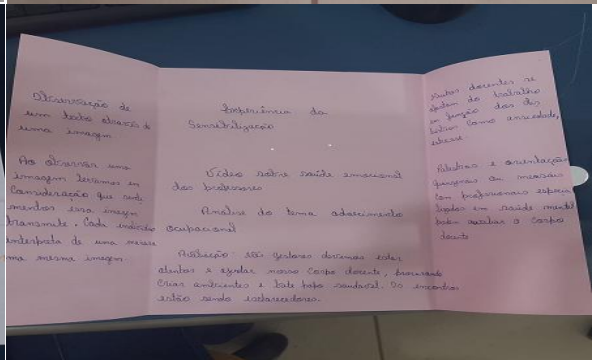 Observação de
um texto através de
uma imagem
Ao observar uma
imagem levamos em
consideração que senti
mentos essa imagem
transmite. Cada indivíduo
interpreta de uma maneira
uma mesma imagem.
Experiência da
Sensibilização
Vídeo sobre saúde emocional
dos professores
Análise do tema adoecimento
ocupacional
Avaliação: nós gestores devemos estar
atentos e ajudar nosso corpo docente, procurando
criar ambientes e bate papo saudável. Os encontros
estão sendo esclarecedores.
Muitos docentes se
afastam do trabalho
em função dos
como ansiedade,
estresse.
Palestras e orientações
ou mensais
com profissionais especia
lizados em saúde mental
podem auxiliar o corpo
docente